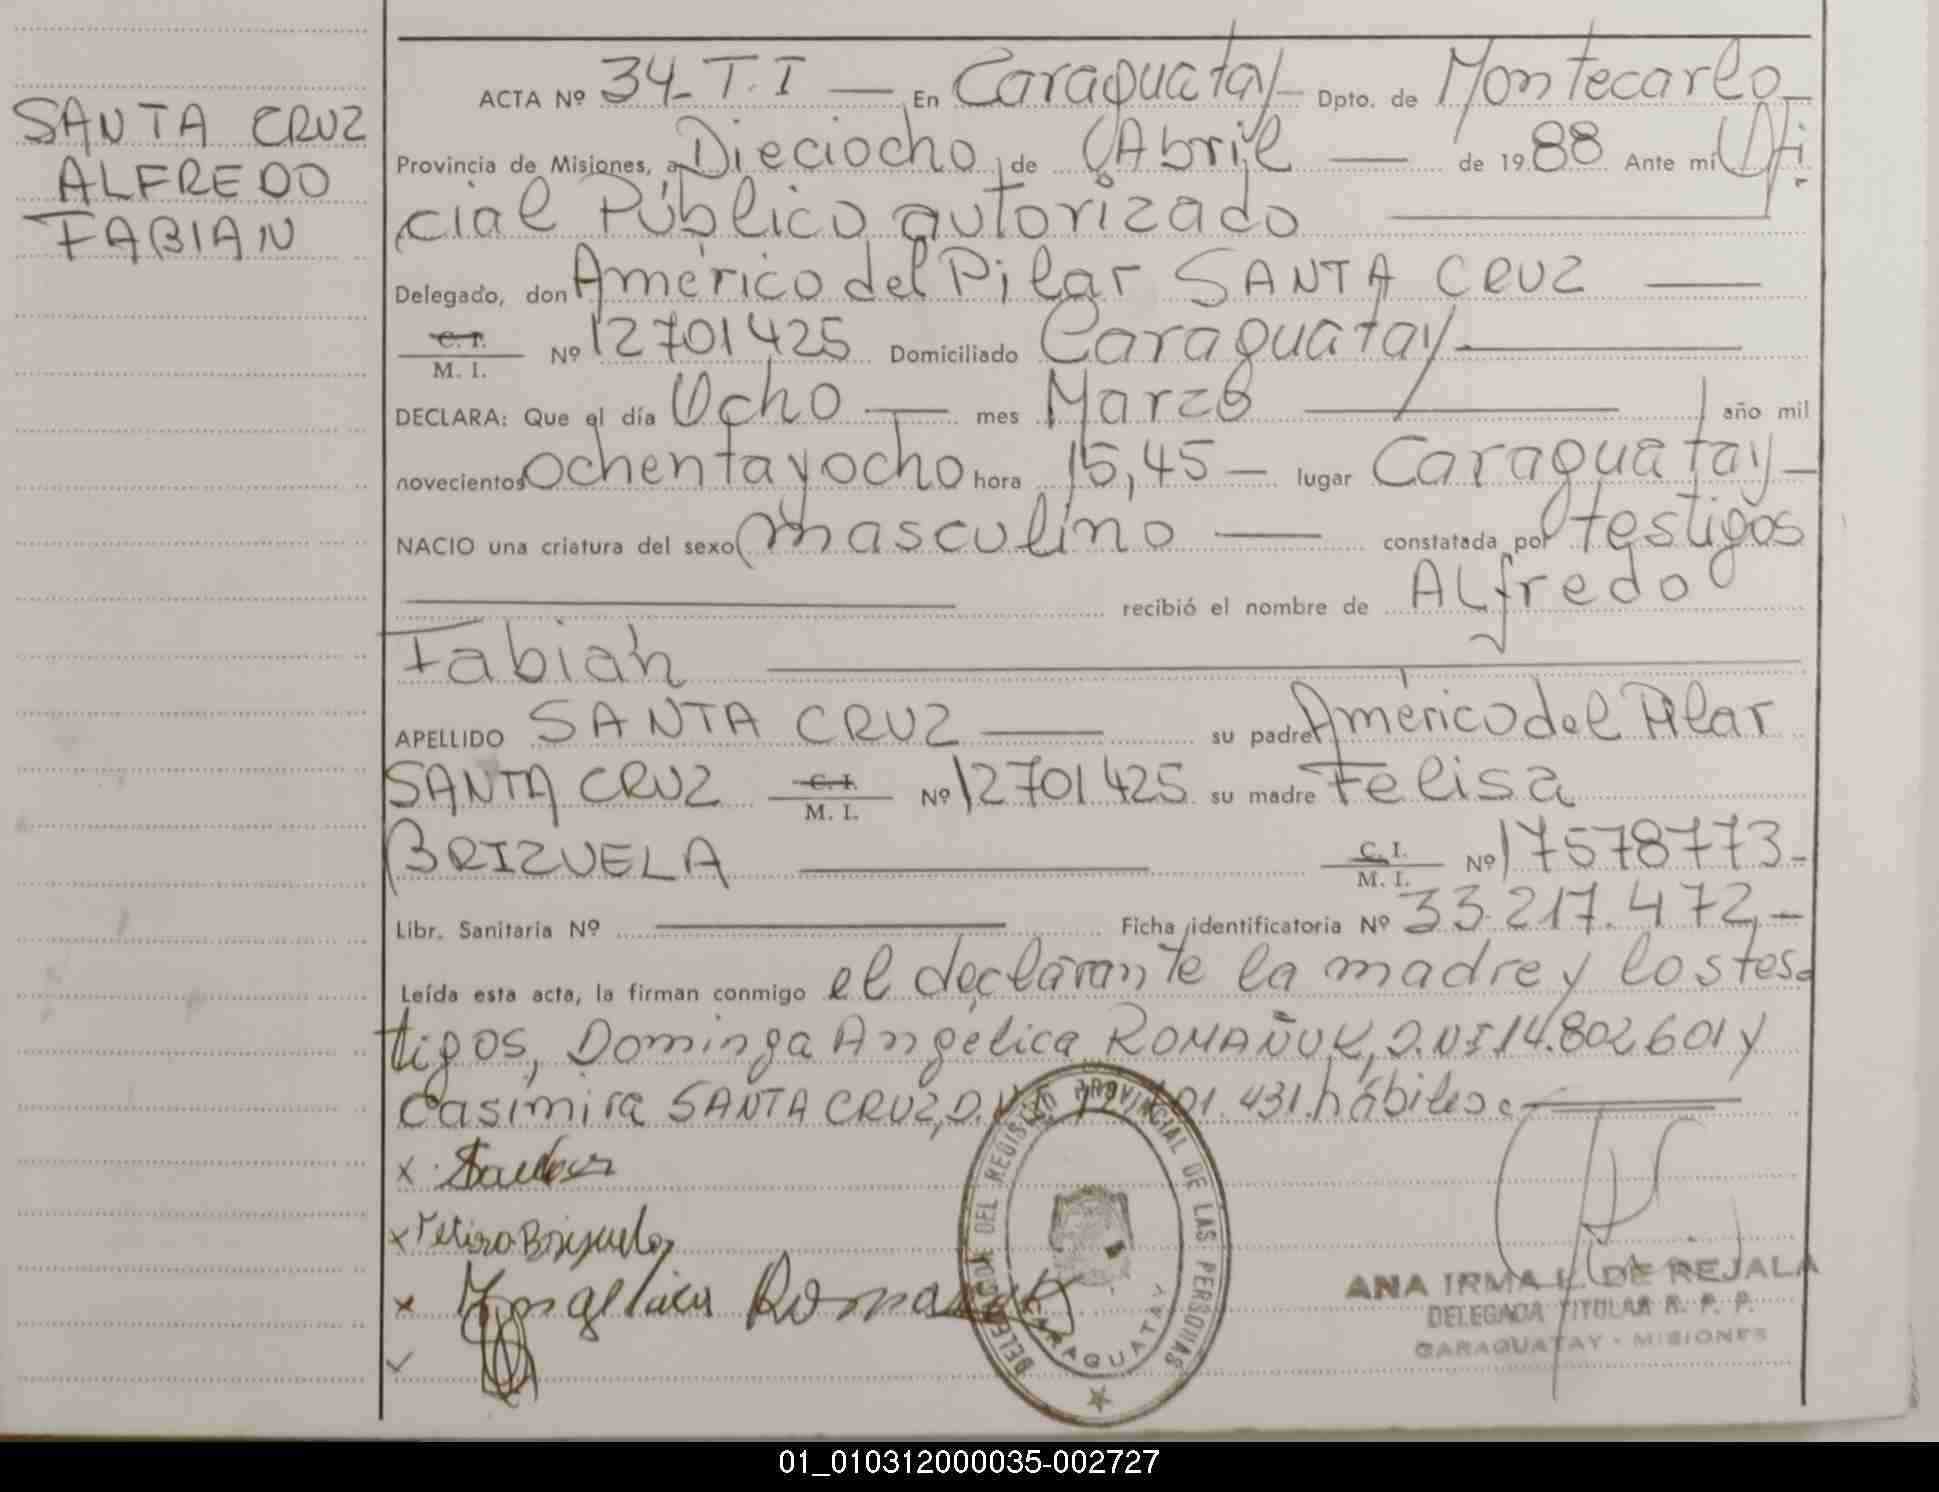 SANTA CRUZ
ALFREDO
FABIAN
ACTA Nº 34_T.I — En Caraguatay — Dpto. de Montecarlo
Provincia de Misiones, a Dieciocho de Abril — de 1988 Ante mí Ofi
cial Público autorizado
Delegado, don Américo del Pilar SANTA CRUZ —
C. I.
M. I. Nº 12701425 Domiciliado Caraguatay —
DECLARA: Que el día Ocho — mes Marzo — año mil
novecientos ochenta y ocho hora 15,45 — lugar Caraguatay —
NACIO una criatura del sexo masculino — constatada por testigos
— recibió el nombre de Alfredo
Fabián —
APELLIDO SANTA CRUZ — su padre Américo del Pilar
SANTA CRUZ C. I.
M. I. Nº 12701425 su madre Felisa
BRIZUELA — C. I.
M. I. Nº 17578773-
Libr. Sanitaria Nº — Ficha identificatoria Nº 33.217.472,-
Leída esta acta, la firman conmigo el declarante la madre y los tes-
tigos, Dominga Angélica ROMAÑUK, D.NI 14.802601 y
Casimira SANTA CRUZ, D. 431. hábiles. —
x
x Felisa Brizuela
x Angelica
DELEGACIÓN DEL REGISTRO PROVINCIAL DE LAS PERSONAS
CARAGUATAY
ANA IRMA L. DE REJALA
DELEGADA TITULAR R. P. P.
CARAGUATAY - MISIONES
01_010312000035-002727